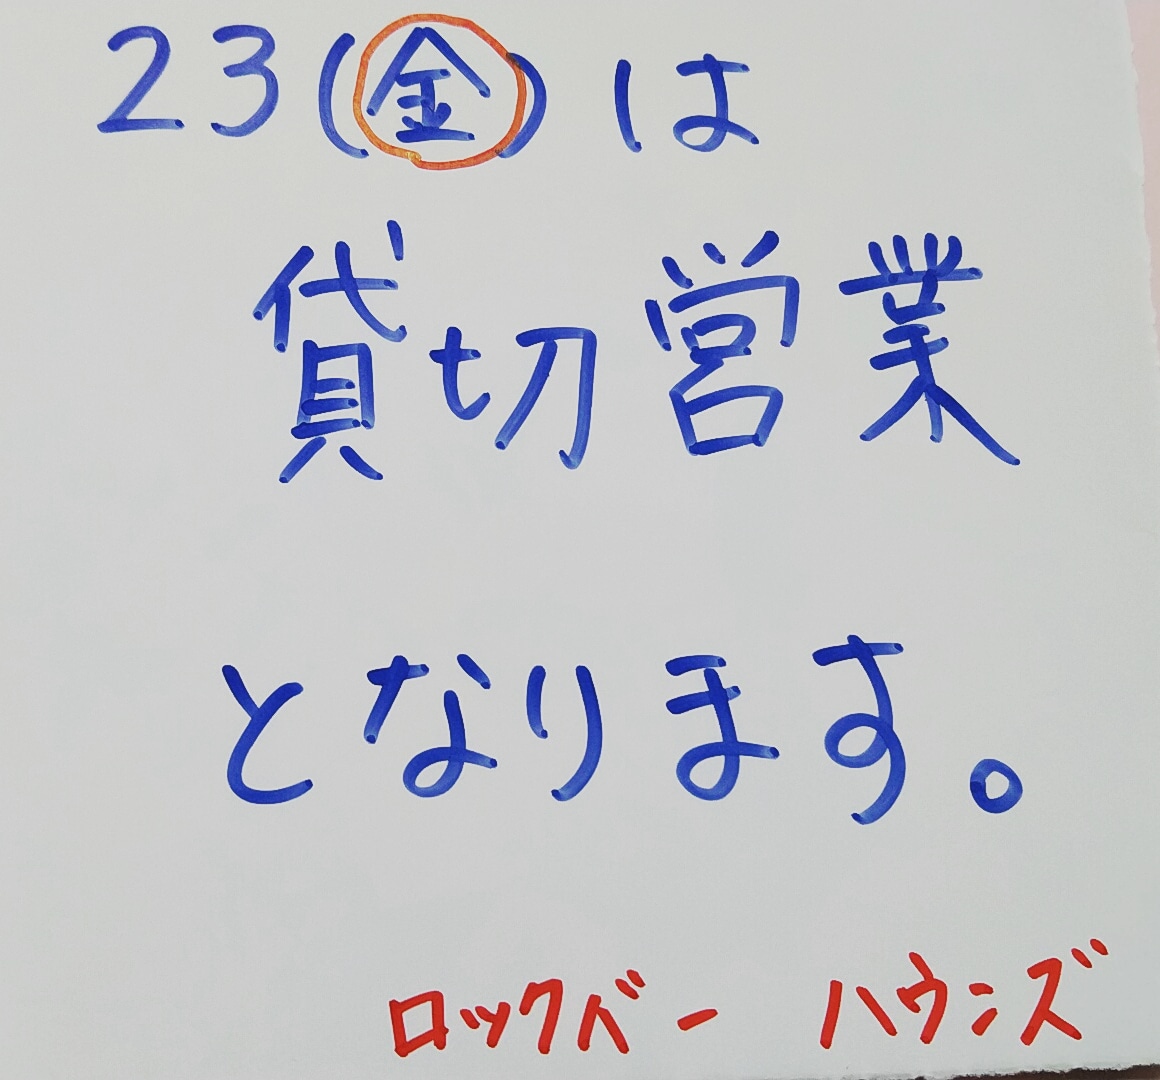 23(金)は
貸切営業
となります。
ロックバー ハウンズ